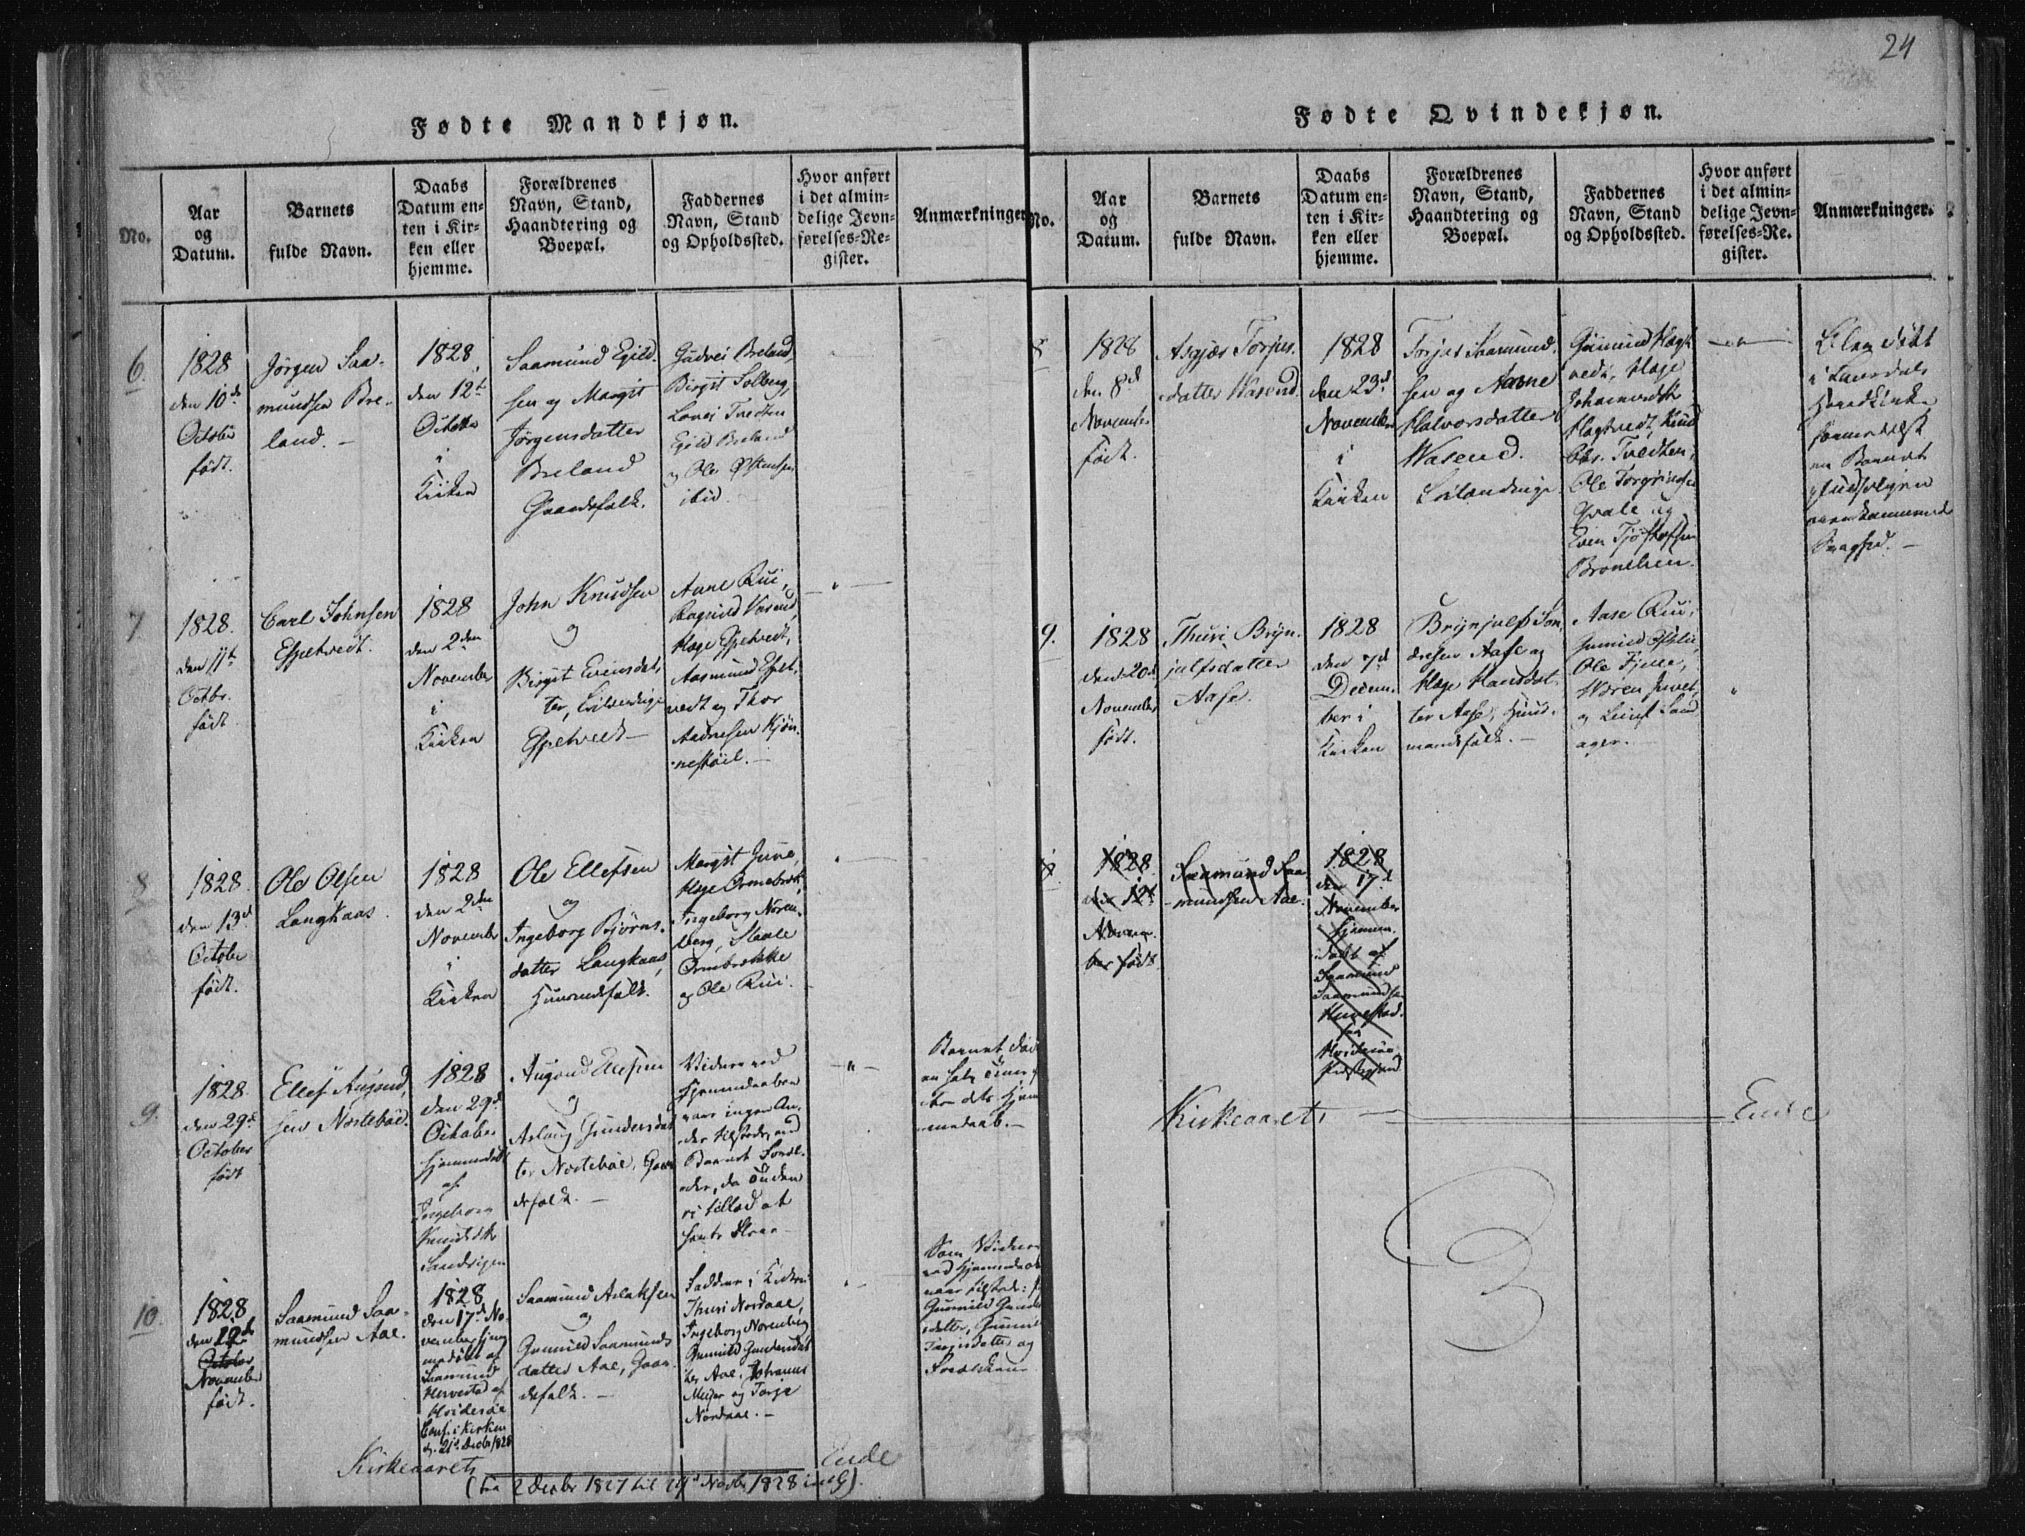 24
Fødte Mandkjøn.
No.
Aar
og
Datum.
Barnets
fulde Navn.
Daabs
Datum en-
ten i Kir-
ken eller
hjemme.
Forældrenes
Navn, Stand,
Haandtering og
Boepæl.
Faddernes
Navn, Stand
og Opholdssted.
Hvor anført
i det almin-
delige Jevn-
førelses-Re-
gister.
Anmærkninger
6.
1828
den 10de
October
født.
Jørgen Saa-
mundsen Bre-
land. -
1828
den 12t
October
i
Kirken
Saamund Egild-
sen og Margit
Jörgensdatter
Breland
Gaardefolk.
Gudvei Breland,
Birgit Solberg,
Tvedten
Egild Breland
og Ole
ibid.
7
1828.
den 11t
Octbr.
født.
Carl Johnsen
Espetvedt.
1828
den 2den
November
i
Kirken
John Knudsen
og
Birgit Evensdat-
ter,
Espetvedt
Anne Rui,
Ragnild Vasend,
Hæge Espetvedt,
Aasmund Espet-
vedt og Thor
Andresen Kjøn-
nestöil. -
8
1828.
den 13d
October
født.
Ole Olsen
Langkaas.
1828
den 2den
November
i
Kirken
Ole Ellefsen
og
Ingeborg Bjørns-
datter Langkaas,
Huusmandsfolk.
Margit Juve,
Hæge
Ingeborg Noren-
berg,
og Ole Rui.
9.
1828.
den 29d
October
født
Ellef Augund-
sen Nordebøe.
1828
den 29d
October
hjemmedöbt
af
Ingeborg
Augond Ellefsen
og
Aslaug Gundersdat-
ter , Gaar-
defolk. -
Vidner ved
Hjemmedaaben
vare ingen An-
dre tilstede, end
Barnet
da Tiden
ei tillod at
hente
Barnet døde
en halv Time ef-
ter dets Hjem-
medaab. -
10.
1828
den 12te
October
November
født.
Saamund Saa-
mundsen Aae.
1828
den 17d No-
vember hjem-
medöbt af
Saamund
af
Hvideseie
Conf. i Kirken
d. 21d Decbr 1828
Saamund Aslaksen
og
Gunnild Saamunds-
datter Aae, Gaar-
defolk. -
Faddere i Kirken:
Thuri Nordaae,
Ingeborg Norenberg,
Gunnild Gundersdat-
ter Aae, Johannes
Meijer og Torje
Nordaae. -
Som Vidner
ved Hjemmedaab
vare tilstede:
Gunnild Gunder
datter,
Torjisdatter og
Kirkeaarets Ende
(fra 2 Decbr 1827 til 24d Novbr 1828 incl).
Fødte Qvindekjøn.
No.
Aar
og
Datum.
Barnets
fulde Navn.
Daabs
Datum en-
ten i Kir-
ken eller
hjemme.
Forældrenes
Navn, Stand,
Haandtering og
Boepæl.
Faddernes
Navn, Stand
og Opholdssted.
Hvor anført
i det almin-
delige Jevn-
førelses-Re-
gister.
Anmærkninger.
8
1828
den 8d
November
født.
Asgjær Torjus-
datter Vasend.
1828
den 23d
November
i
Kirken
Torjus Aasmund-
sen og Anne
Halvorsdatter
Wasend.
Gunnild Hægt-
vedt, Hæge
Johannesdtr
Hægtvedt, Knud
Olss. Tvedten,
Ole Torgrimsen
Qvale og
Even Tjøstolfsen
Bronelien.
døbt
i Laurdals
Hovedkirke
formedelst
en Barnet
Svaghed. -
9.
1828
den 20d
November
født.
Thuri Bryn-
julfsdatter
Aase.
1828
den 7d
Decem-
ber i
Kirken
Brynjulf Son-
dresen Aase og
Hæge Hansdat-
ter Aase, Huus-
mandsfolk. -
Aase Rui,
Ole Fjelle,
Søren Juvet,
og Leiuf Sand-
ager. -
8
1828
den 12t
Novem-
ber født
Saamund Saa-
mundsen Aae.
1828
den 17d
November
hjemme-
döbt af
Saamund
Saamundsen
fra
Hvideseie
Præstegjeld
Kirkeaarets Ende